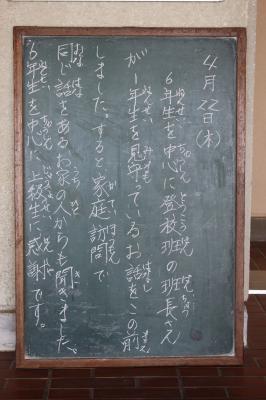 4月22日(木)
6年生を中心に登校班の班長さん
が1年生を見守っているお話をこの前
しました。すると家庭訪問で
同じ話をあるお家の人からも聞きました。
6年生を中心に上級生に感謝です。